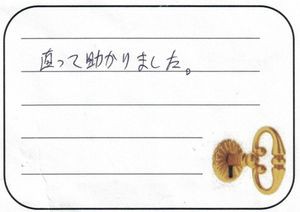 直って助かりました。